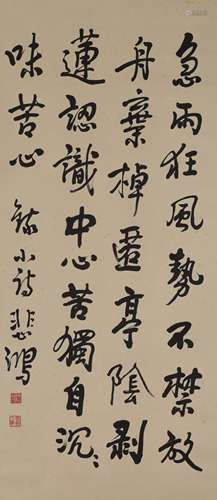 急雨狂風勢不禁放
舟棄棹匿亭陰剥
蓮認識中心苦獨自沉〻
味苦心 錄小詩 悲鴻